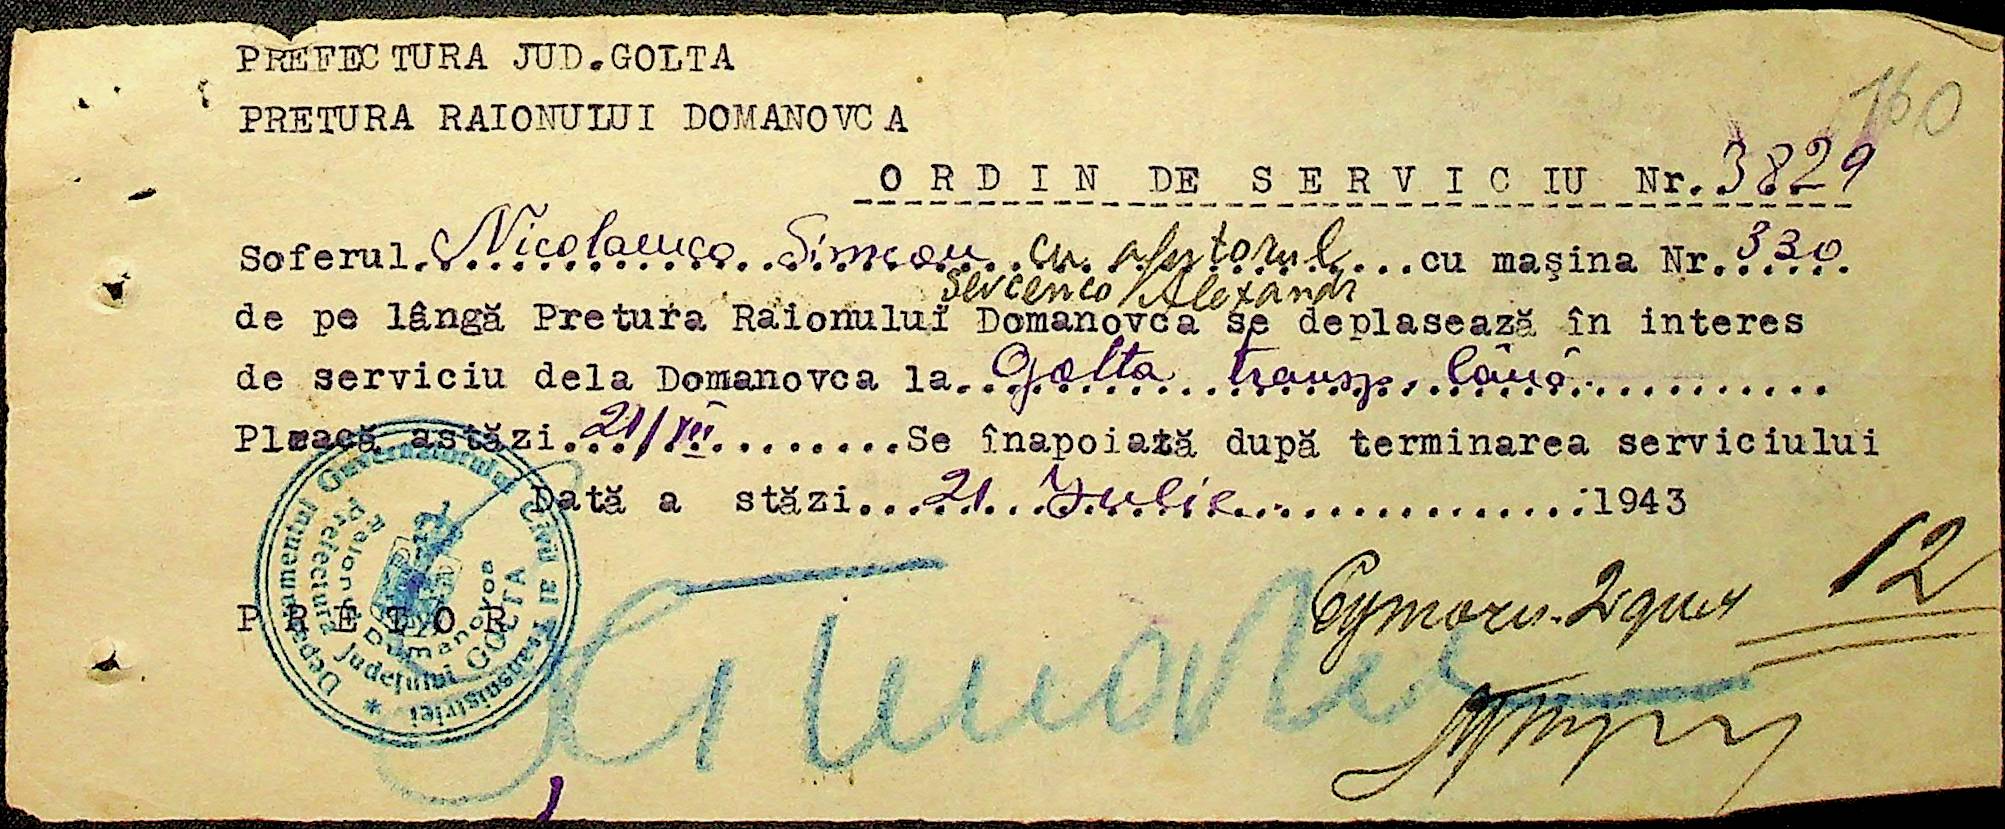 160
PREFECTURA JUD.GOLTA
PRETURA RAIONULUI DOMANOVCA
ORDIN DE SERVICIU Nr. 3829
Soferul. Nicolaenco Simeon cu ajutorul ...cu mașina Nr. 330
Sevcenco Alexandr
de pe lângă Pretura Raionului Domanovca se deplasează în interes
de serviciu dela Domanovca la.. Golta transp. lână
Pleacă astăzi.. 21/VII ........Se înapoiază după terminarea serviciului
Dată a stăzi... 21 Iulie ...............1943
PRETOR
Guvernământul Civil al Transnistriei
Prefectura Județului GOLTA
Raionul Domanovca
12